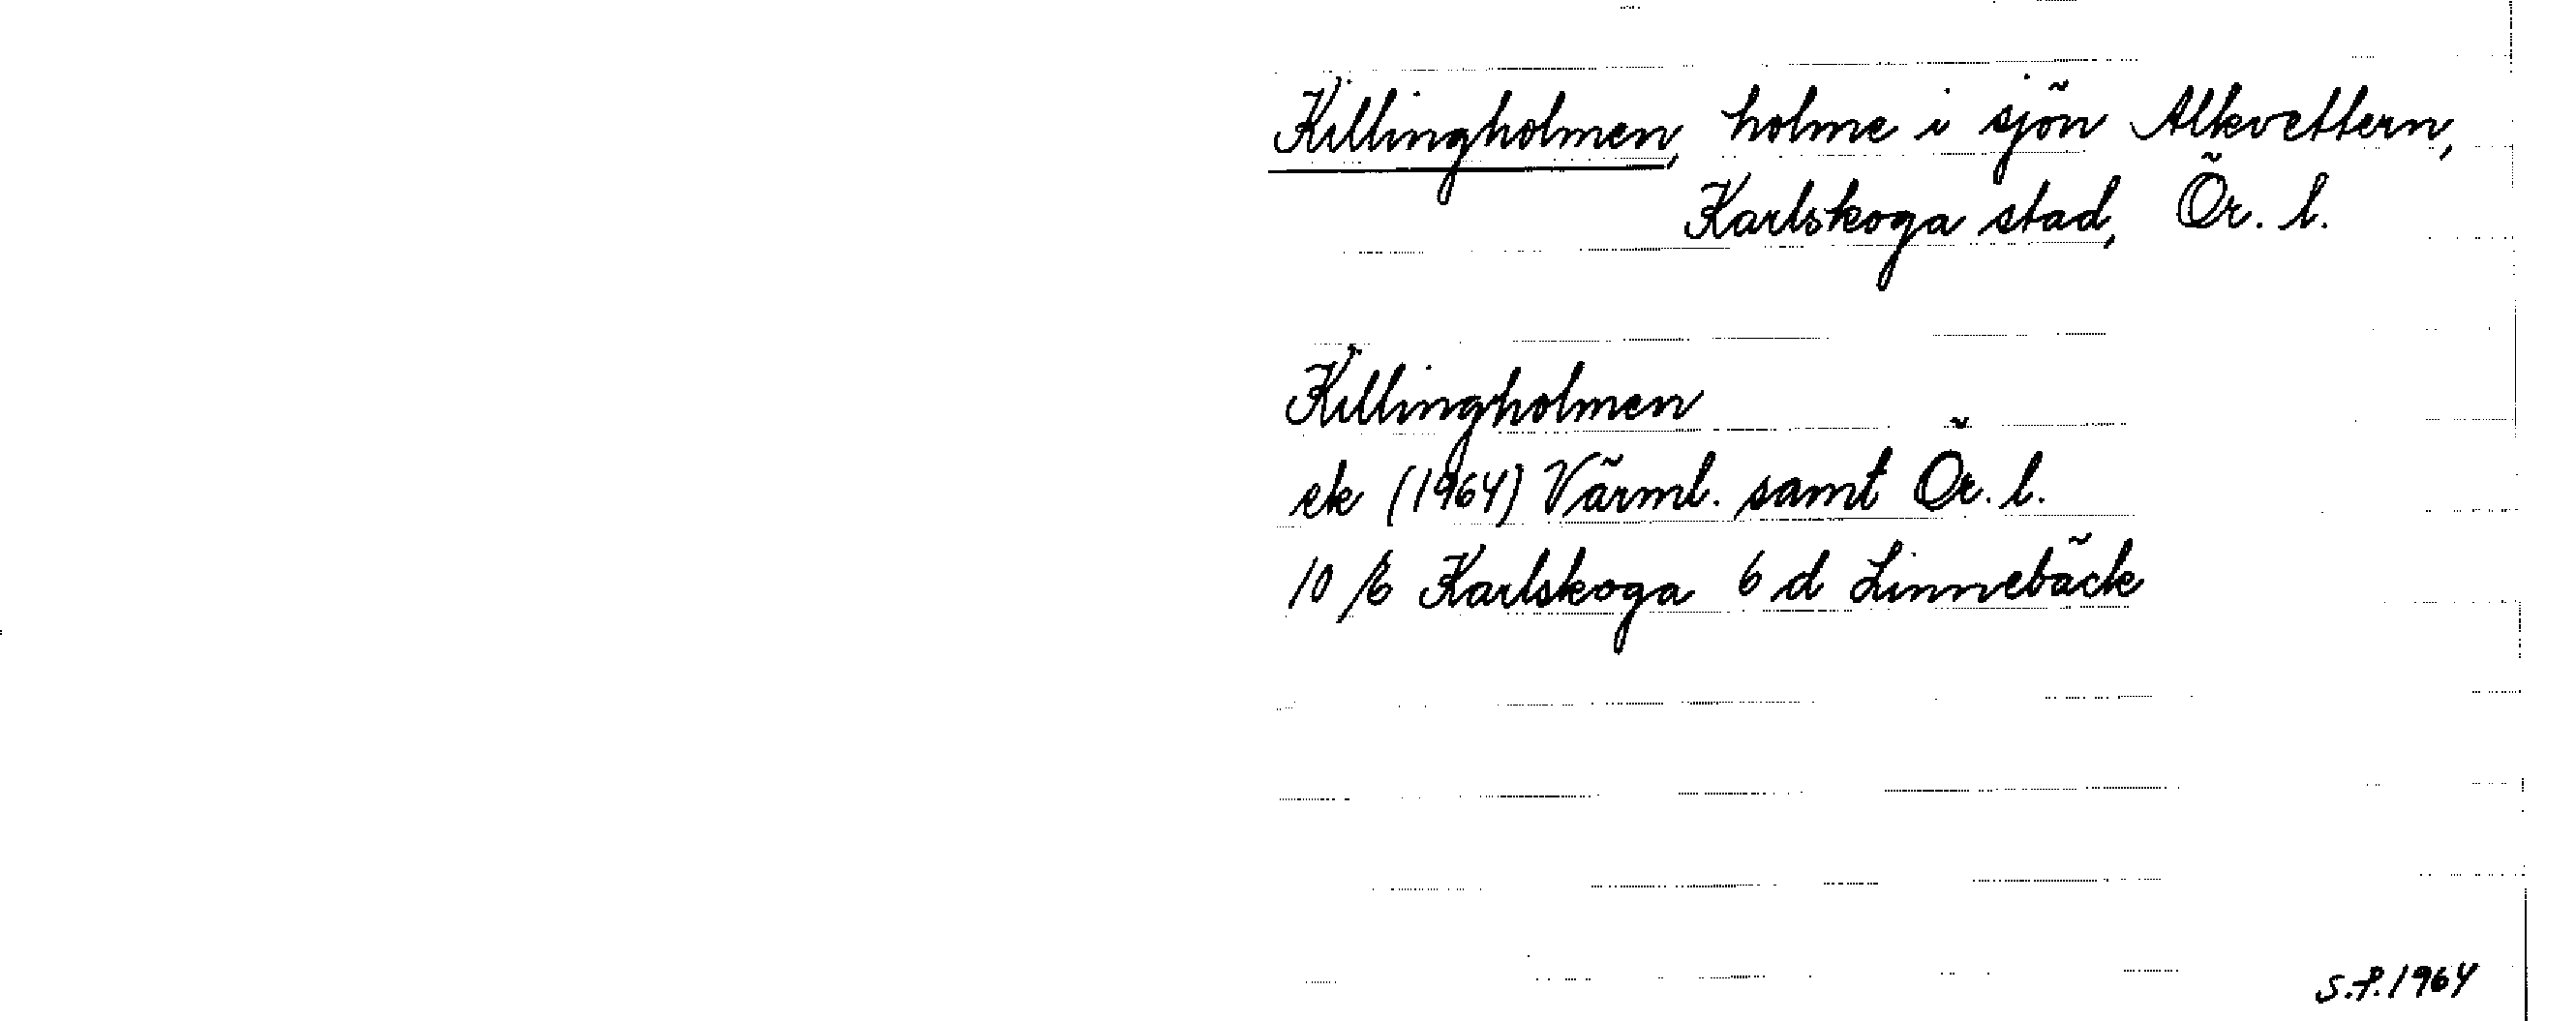 Killingholmen, holme i sjön Alkvettern,
Karlskoga stad, Ör. l.
Killingholmen
ek (1964) Värml. samt Ör. l.
10/6 Karlskoga 6 d Linnebäck
S.F. 1964